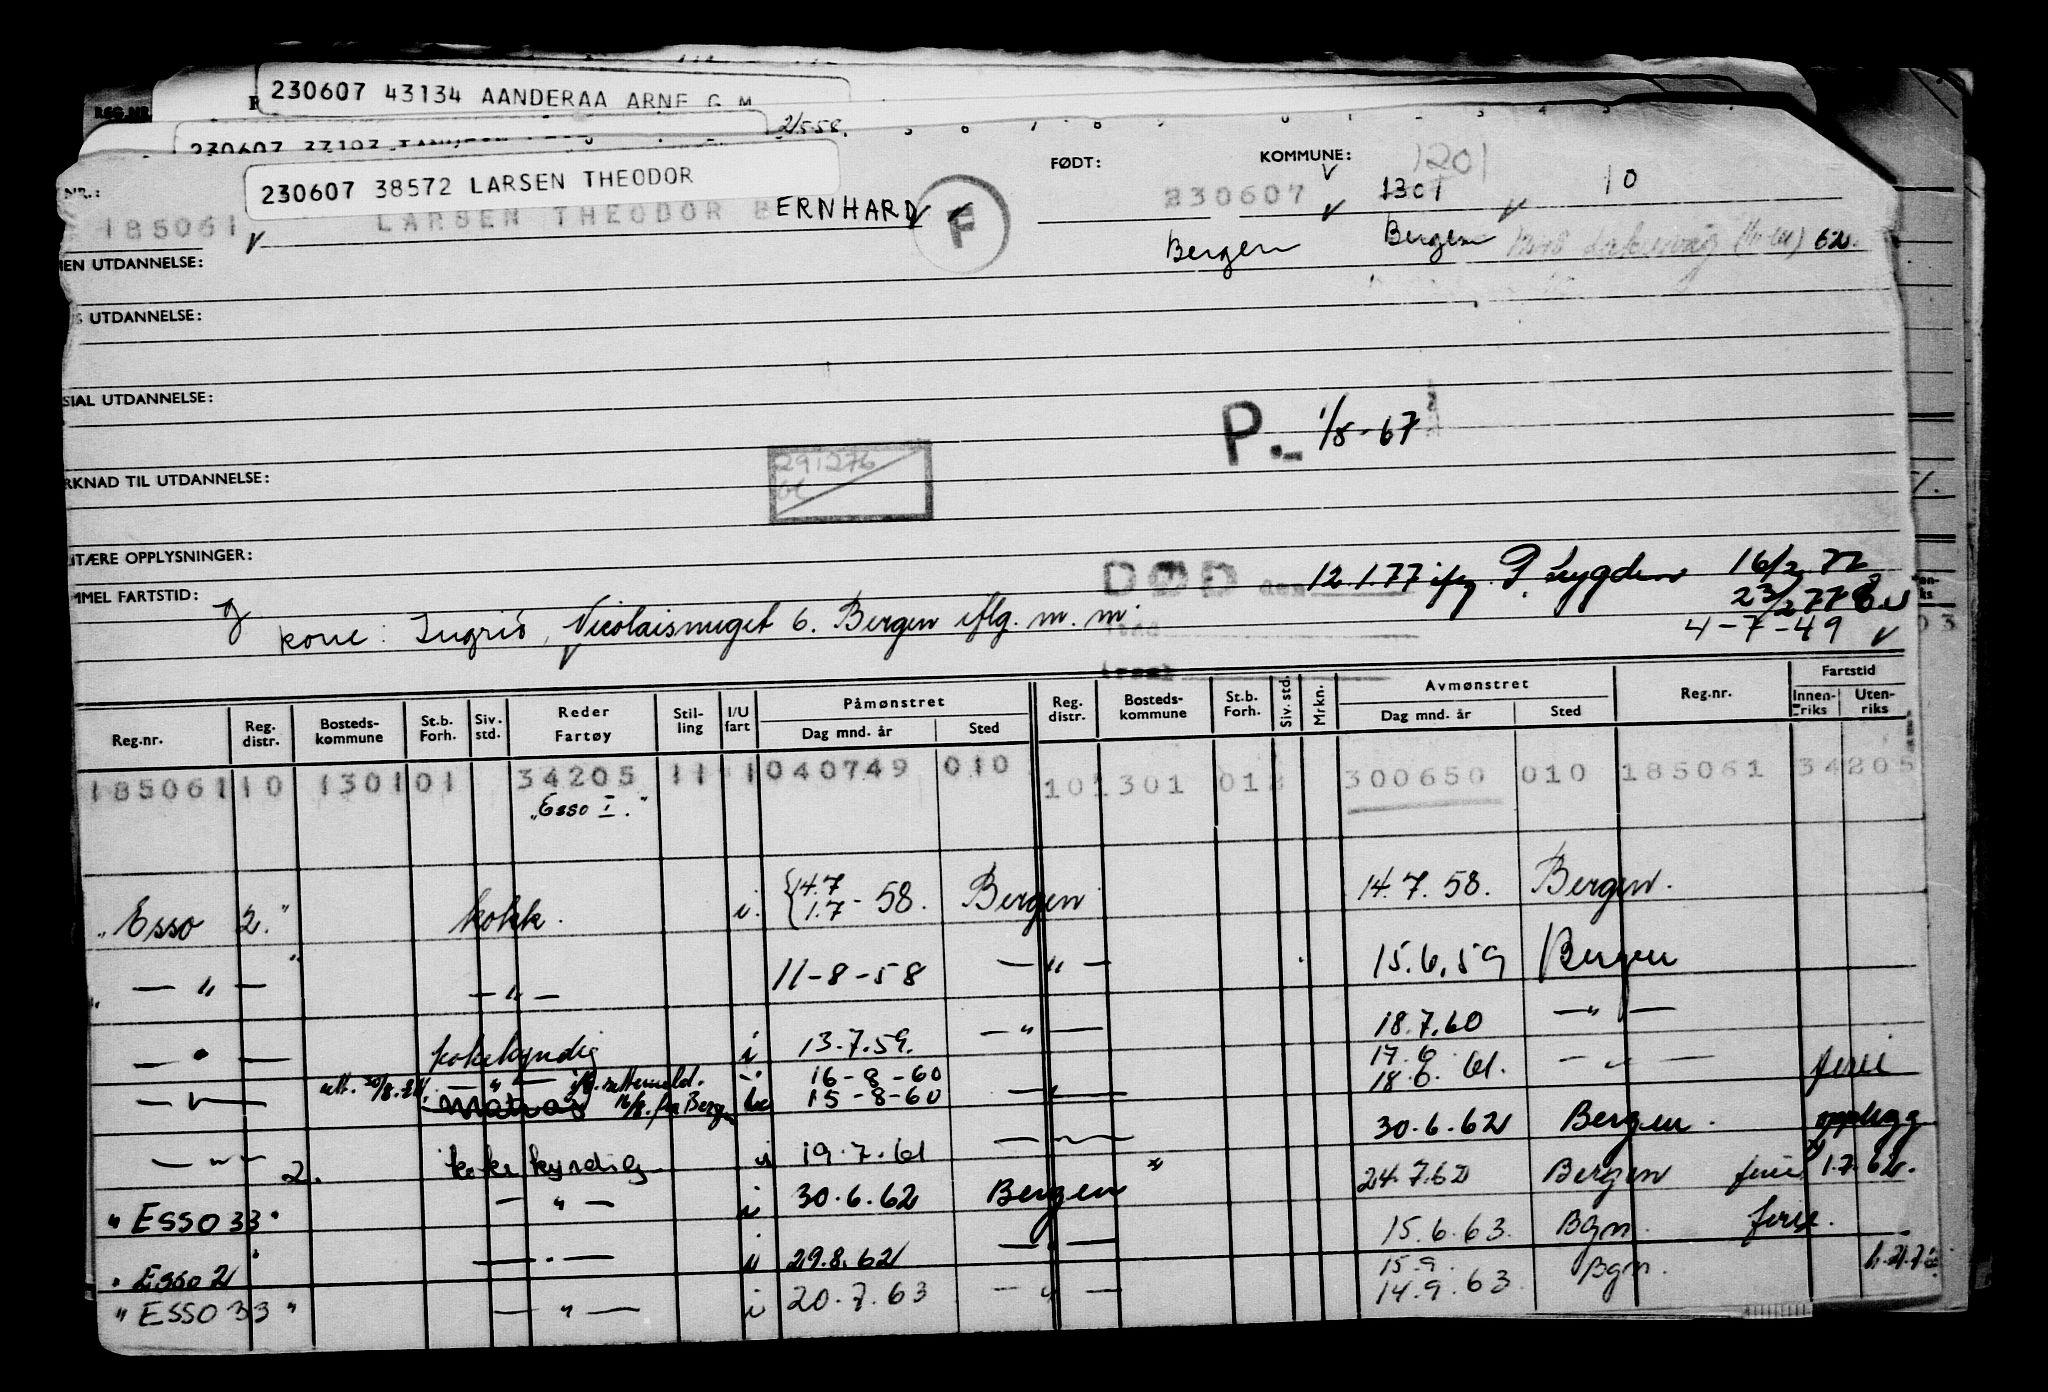 230607 43134 AANDERAA ARNE G M
2/5-58.
230607 38572 LARSEN THEODOR
NR.:
FØDT:
KOMMUNE:
1201
185061
LARSEN THEODOR BERNHARD
F
230607
1301
10
Bergen
Bergen
62.
UTDANNELSE:
UTDANNELSE:
SIAL UTDANNELSE:
P.- 1/8-67
291276
RKNAD TIL UTDANNELSE:
ITÆRE OPPLYSNINGER:
DØD den 12.1.77 ifg.
16/2.77
MMEL FARTSTID:
23/2 77
kone: Ingrid, Nicolaismuget 6. Bergen iflg. m. m.
4-7-49
Reg.nr.
Reg. distr.
Bosteds-kommune
St.b. Forh.
Siv. std.
Reder Fartøy
Stil-ling
I/U fart
Påmønstret
Dag mnd. år
Sted
Reg. distr.
Bosteds-kommune
St.b. Forh.
Siv. std.
Mrkn.
Avmønstret
Dag mnd. år
Sted
Reg.nr.
Fartstid
Innen-riks
Uten-riks
185061 10 1301 01 34205 11 1 040749 010 10 1301 01 300650 010 185061 34205
"Esso I."
"Esso 2." kokk. i. {14.7 1.7 - 58. Bergen 14.7.58. Bergen.
— " — — " — 11-8-58 — " — 15.6.59 Bergen
— " — kokekyndig i 13.7.59. — " — 18.7.60 — " —
— " — rett. 20/8.61. — " — ifg. rettemeld. 16/8. fra Bergen i 16-8-60 17.6 18.6. 61. — " — ferie
matros 15-8-60 — " —
— " — 2. koke kyndig i 19.7.61 — " — 30.6.62 Bergen. opplegg
"ESSO 33" — " — i 30.6.62 Bergen 24.7.62 Bergen ferie 1.7.62.
"Esso 2" — " — i 29.8.62 — " — 15.6.63. Bgn. ferie.
"ESSO 33" — " — i 20.7.63 — " — 15.9. 14.9.63. Bgn.